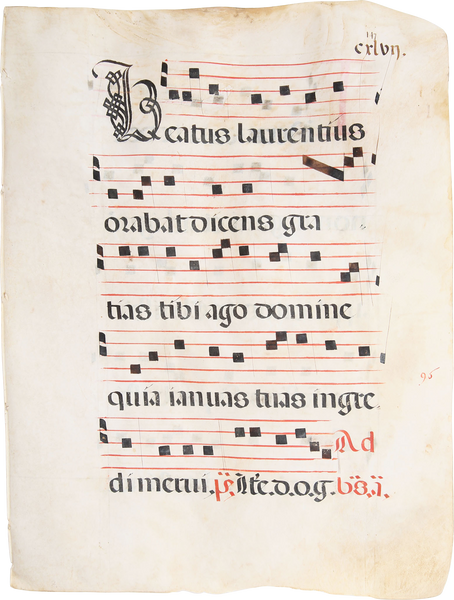 cxlvij.
Beatus laurentius
orabat dicens gra
tias tibi ago domine
quia ianuas tuas ingre
96
Ad
di merui. ps. Ite. d. o. g. bs. i.